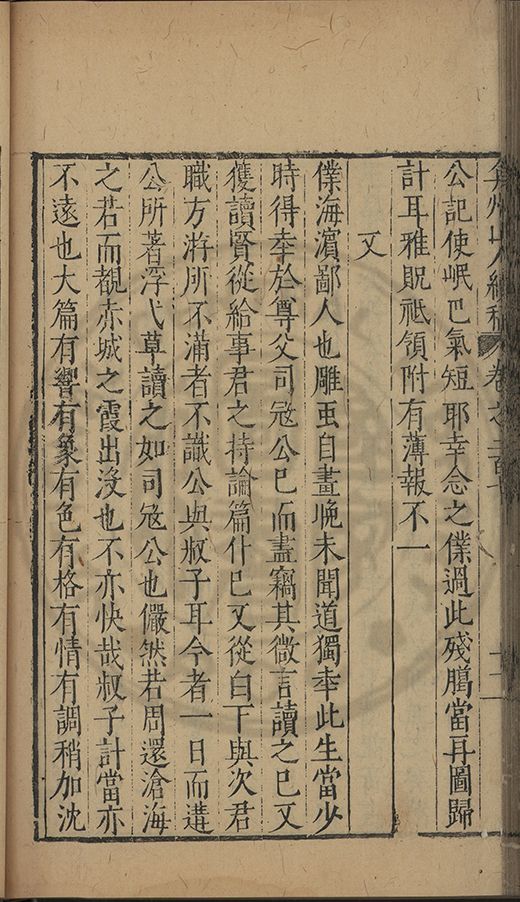 弇州山人續稿 卷之二百
公記使岷巴氣短耶幸念之僕過此殘臈當再圖歸
計耳雅貺祗領附有薄報不一
又
僕海濵鄙人也雕虫自畫晚未聞道獨幸此生當少
時得奉於尊父司寇公已而盡竊其微言讀之已又
獲讀賢從給事君之持論篇什已又從白下與次君
職方游所不滿者不識公與叔子耳今者一日而遘
公所著浮弋草讀之如司寇公也儼然若周還滄海
之若而覩赤城之霞出没也不亦快哉叔子計當亦
不遠也大篇有響有象有色有格有情有調稍加沈